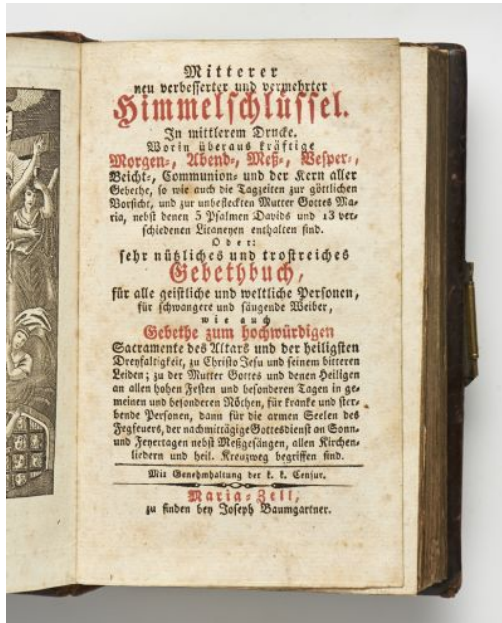 Mitterer
neu verbesserter und vermehrter
Himmelschlüssel.
In mittlerem Drucke.
Worin überaus kräftige
Morgen-, Abend-, Meß-, Vesper-,
Beicht-, Communion- und der Kern aller
Gebethe, so wie auch die Tagzeiten zur göttlichen
Vorsicht, und zur unbefleckten Mutter Gottes Ma-
ria, nebst denen 5 Psalmen Davids und 13 ver-
schiedenen Litaneyen enthalten sind.
Oder:
sehr nützliches und trostreiches
Gebethbuch,
für alle geistliche und weltliche Personen,
für schwangere und säugende Weiber,
wie auch
Gebethe zum hochwürdigen
Sacramente des Altars und der heiligsten
Dreyfaltigkeit, zu Christo Jesu und seinem bitteren
Leiden; zu der Mutter Gottes und denen Heiligen
an allen hohen Festen und besonderen Tagen in ge-
meinen und besonderen Nöthen, für kranke und ster-
bende Personen, dann für die armen Seelen des
Fegfeuers, der nachmittägige Gottesdienst an Sonn-
und Feyertagen nebst Meßgesängen, allen Kirchen-
liedern und heil. Kreuzweg begriffen sind.
Mit Genehmhaltung der k. k. Censur.
Maria-Zell,
zu finden bey Joseph Baumgartner.